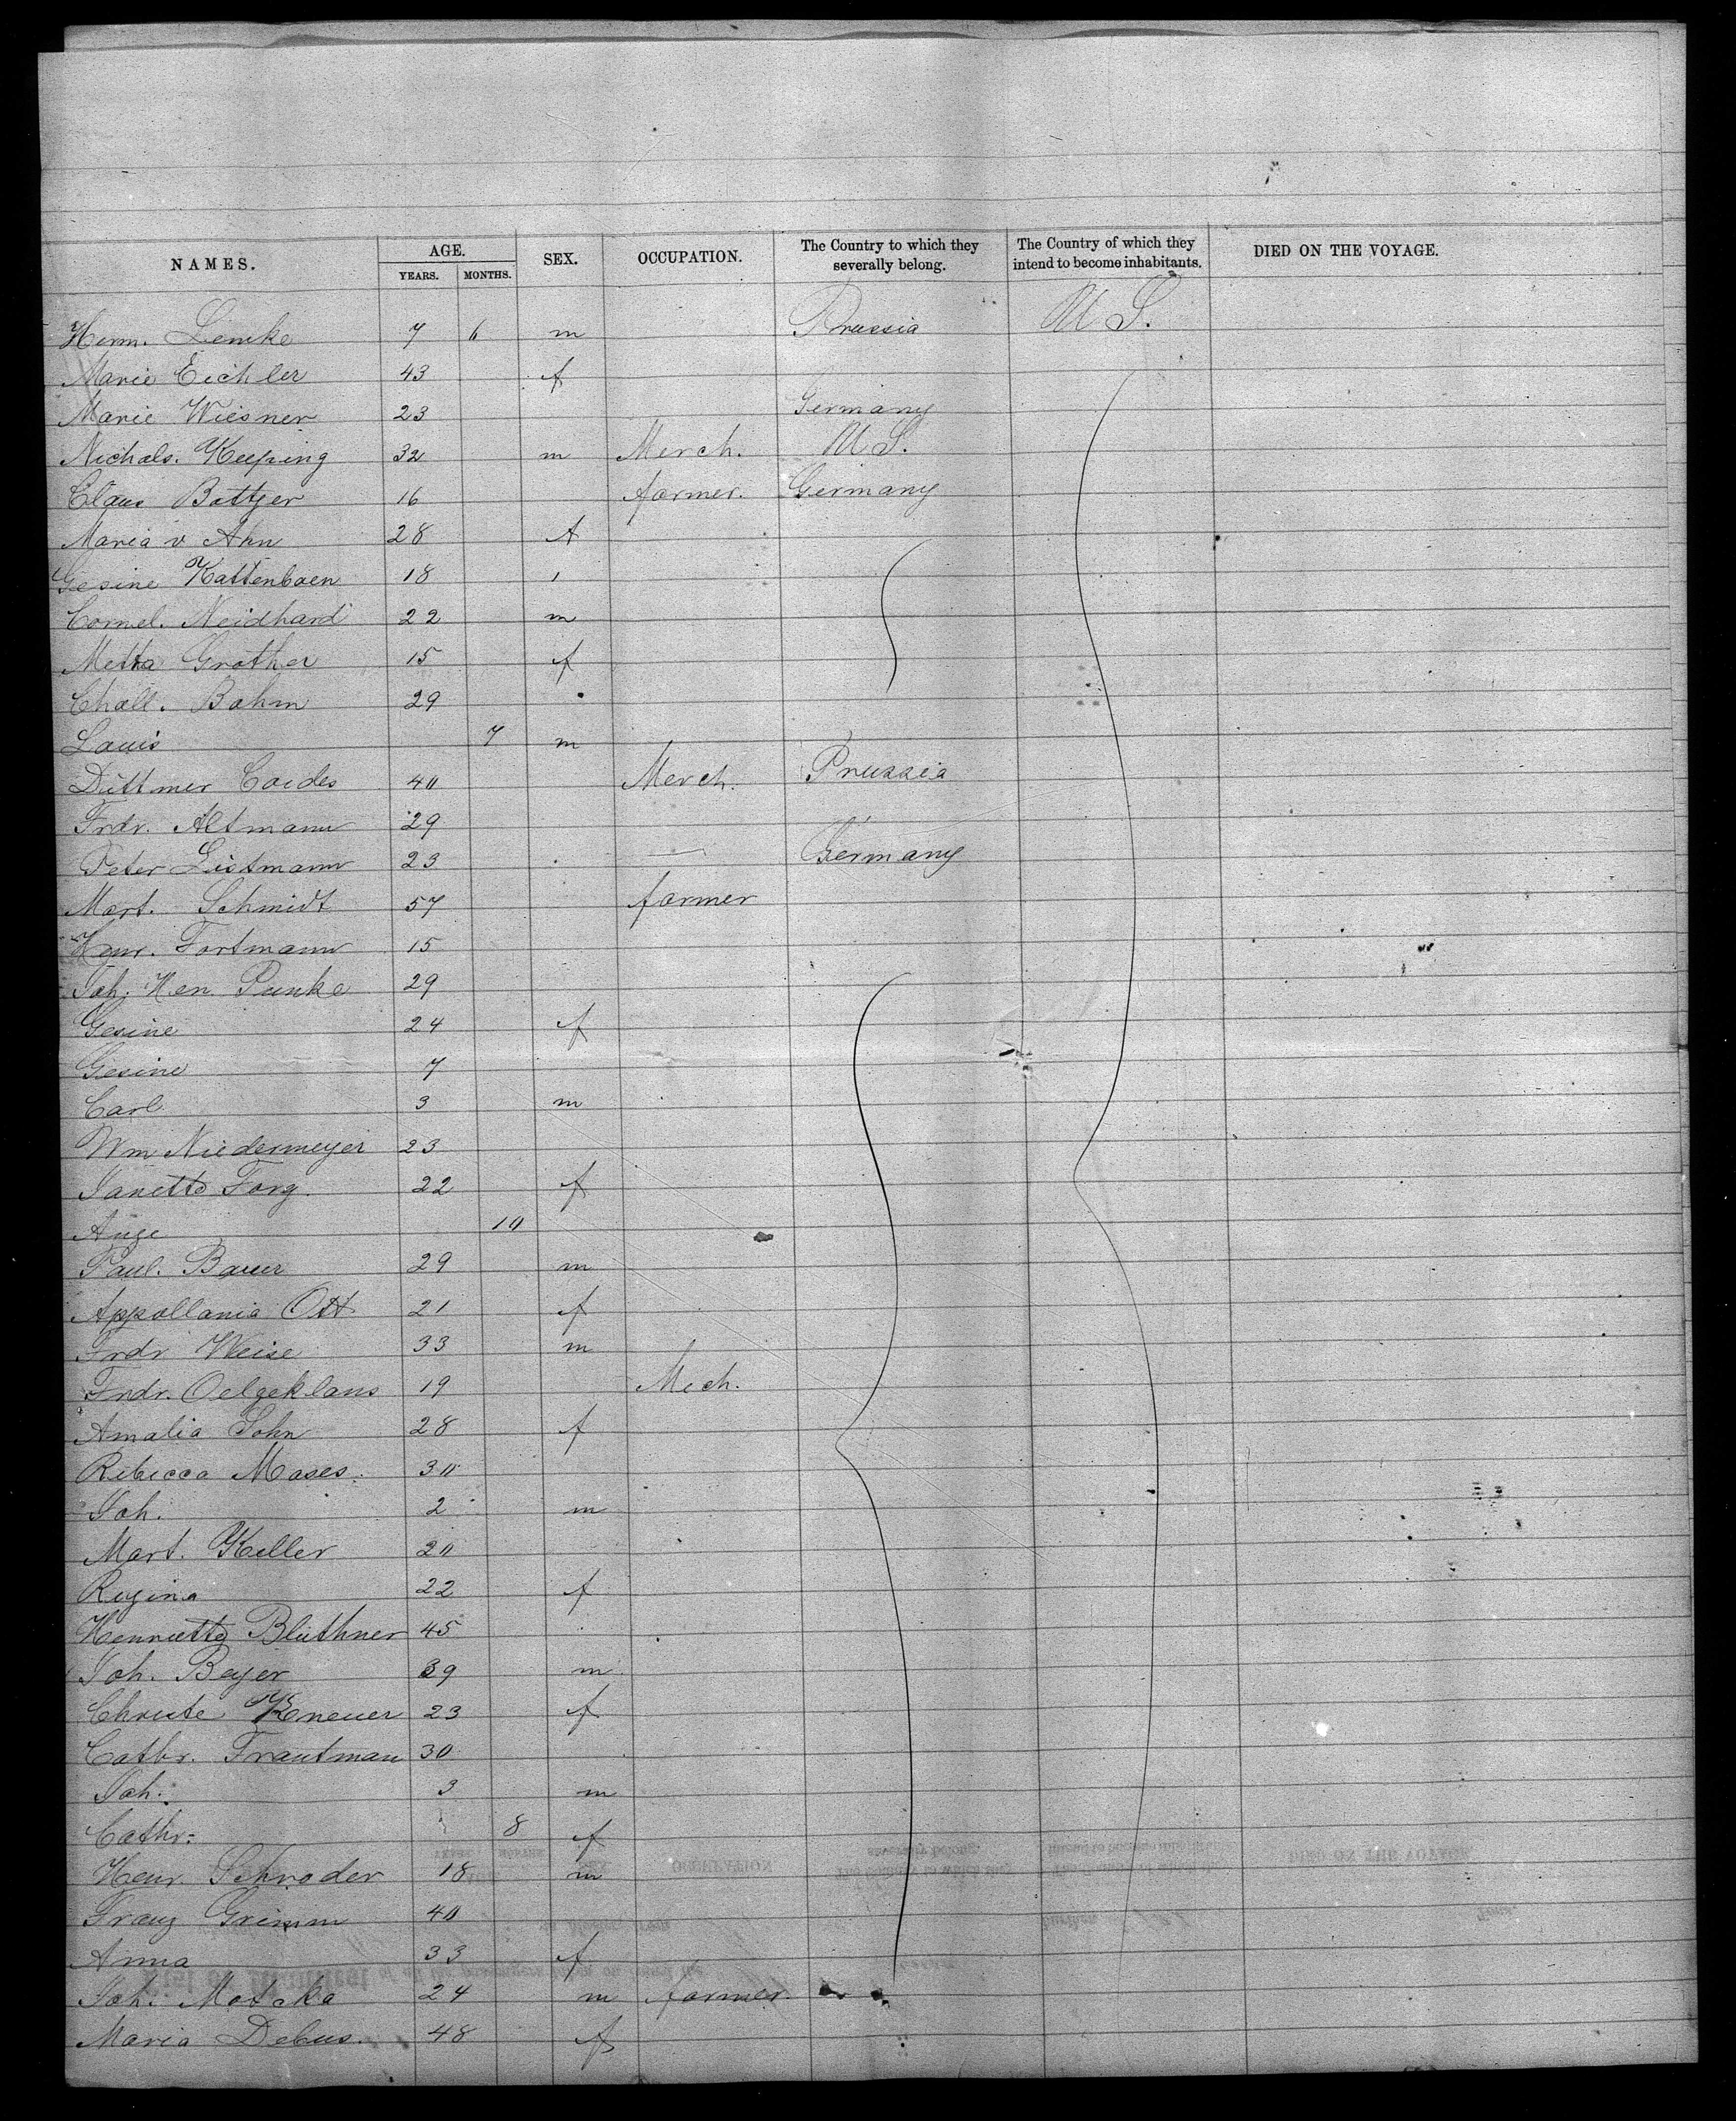 NAMES. AGE. YEARS. MONTHS. SEX. OCCUPATION. The Country to which they severally belong. The Country of which they intend to become inhabitants. DIED ON THE VOYAGE.
Herm. Lemke 7 6 m Prussia U S.
Marie Eichler 43 f
Marie Wiesner 23 Germany
Nichols. Keeping 32 m Merch. U S.
Claus Bottger 16 farmer. Germany
Maria v Ahn 28 f
Gesine Kattenbaen 18
Cornel. Neidhard 22 m
Metta Grother 15 f
Chall. Bahm 29
Louis 7 m
Dittmer Cordes 40 Merch. Prussia
Frdr. Altmann 29
Peter Listmann 23 — Germany
Mart. Schmidt 57 farmer
Henr. Fortmann 15
Joh. Hen Punke 29
Gesine 24 f
Gesine 7
Carl 3 m
Wm Niedermeyer 23
Janette Forg. 22 f
Auge 10
Paul. Bauer 29 m
Appollania Ott 21 f
Frdr Weise 33 m
Frdr. Oelgeklaus 19 Mech.
Amalia Sohn 28 f
Rebecca Moses. 30
Joh. 2 m
Mart. Keller 20
Regina 22 f
Henriette Bluthner 45
Joh. Beyer 39 m
Christe Kneuer 23 f
Cathr. Trautman 30
Joh. 3 m
Cathr. 8 f
Henr. Schroder 18 m
Franz Grimm 40
Anna 33 f
Joh. Motcka 24 m farmer.
Maria Debus. 48 f